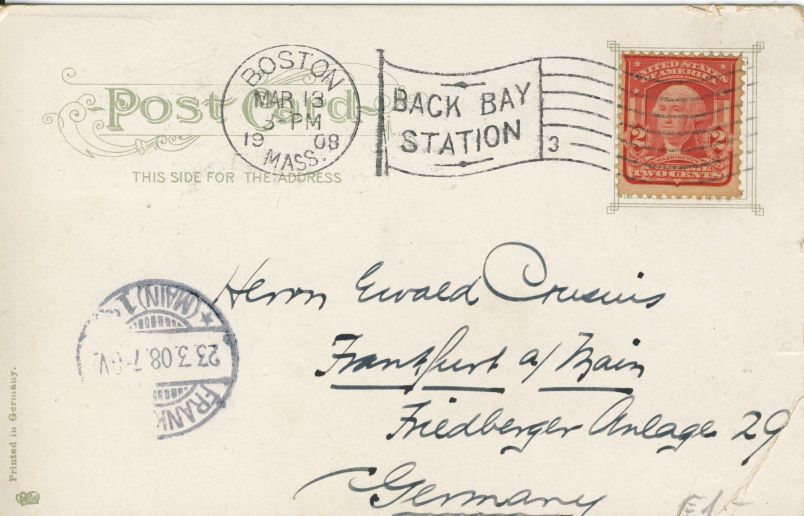 Post Card
THIS SIDE FOR THE ADDRESS
BOSTON
MAR 13
3-PM
19 08
MASS.
BACK BAY
STATION
3
UNITED STATES
OF AMERICA
2 2
WASHINGTON
TWO CENTS
Herrn Ewald Crusius
Frankfurt a/Main
Friedberger Anlage 29
Germany
FRANK
23.3.08.7
* (MAIN) 1
Printed in Germany.